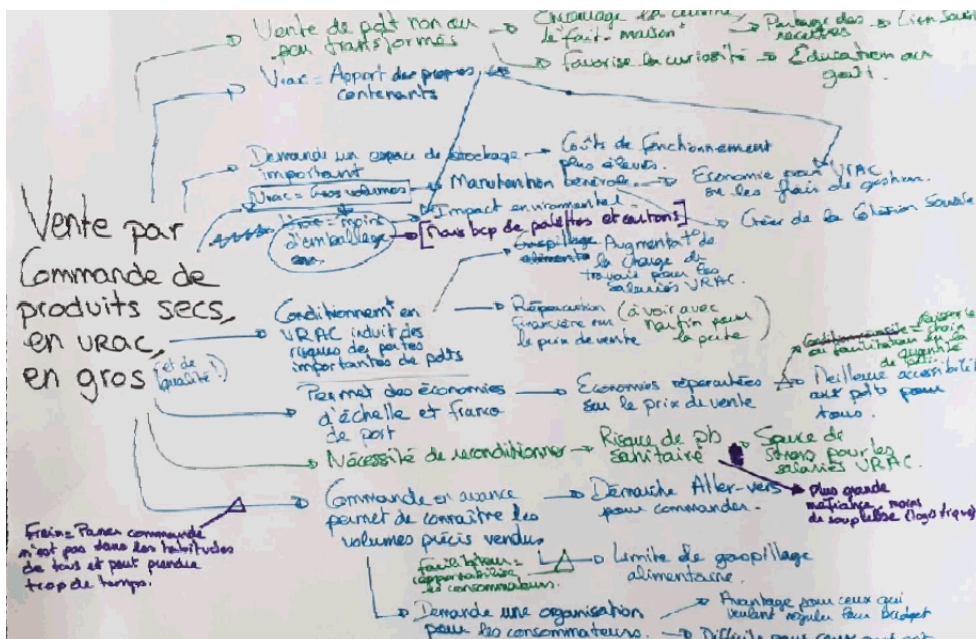 Vente par
Commande de
produits secs,
en vrac,
en gros
(et de
qualité !)
Vente de pdt non ou
peu transformés
Encourage la cuisine
"le fait-maison"
Partage des
recettes
Favorise la curiosité
Education au
goût.
Vrac = Apport des propres
contenants
Demande un espace de stockage
important
Coûts de fonctionnement
plus élevés.
Vrac = Gros volumes
Manutention bénévole
Economie pour VRAC
sur les frais de gestion.
Créer de la Cohésion
Vrac = moins
d'emballage
Impact environnemental
[Mais bcp de palettes et cartons]
Gaspillage
Augmentat° de
la charge de
travail pour les
salariés VRAC.
Conditionnemt en
VRAC induit des
risques de pertes
importantes de pdts
Répercution
financière sur
le prix de vente
(à voir avec
pour
la perte)
Permet des économies
d'échelle et franco
de port
Economies répercutées
sur le prix de vente
ou facilitation
choix
de la
quantité
Meilleure accessibilité
aux pdts pour
tous.
Nécessité de reconditionner
Risque de pb
sanitaire
Source de
stress pour les
salariés VRAC.
plus grande
méfiance, moins
de souplesse (logistique)
Commande en avance
permet de connaître les
volumes précis vendus
Démarche Aller-vers
pour commander.
Frein = Passer commande
n'est pas dans les habitudes
de tous et peut prendre
trop de temps.
les consommateurs.
Limite le gaspillage
alimentaire.
Demande une organisation
pour les consommateurs.
Avantage pour ceux qui
veulent réguler leur budget
Difficile pour ceux qui ont